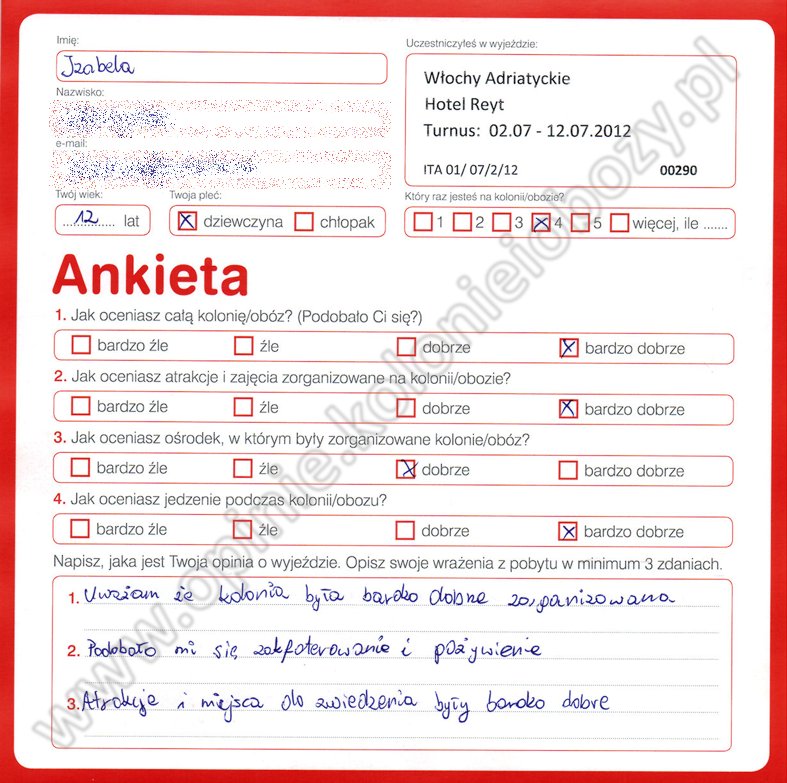 Imię:
Izabela
Uczestniczyłeś w wyjeździe:
Włochy Adriatyckie
Hotel Reyt
Turnus: 02.07 - 12.07.2012
ITA 01/ 07/2/12 00290
Nazwisko:
e-mail:
Twój wiek:
12 lat
Twoja płeć:
dziewczyna chłopak
Który raz jesteś na kolonii/obozie?
1 2 3 4 5 więcej, ile .......
Ankieta
1. Jak oceniasz całą kolonię/obóz? (Podobało Ci się?)
bardzo źle źle dobrze bardzo dobrze
2. Jak oceniasz atrakcje i zajęcia zorganizowane na kolonii/obozie?
bardzo źle źle dobrze bardzo dobrze
3. Jak oceniasz ośrodek, w którym były zorganizowane kolonie/obóz?
bardzo źle źle dobrze bardzo dobrze
4. Jak oceniasz jedzenie podczas kolonii/obozu?
bardzo źle źle dobrze bardzo dobrze
Napisz, jaka jest Twoja opinia o wyjeździe. Opisz swoje wrażenia z pobytu w minimum 3 zdaniach.
1. Uważam że kolonia była bardzo dobrze zorganizowana
2. Podobało mi się zakfaterowanie i pożywienie
3. Atrakcje i miejsca do zwiedzenia były bardzo dobre
www.opinie.kolonieiobozy.pl